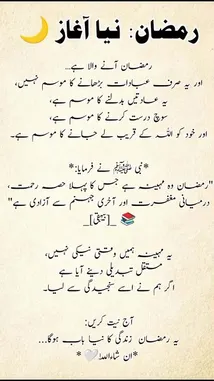 رمضان: نیا آغاز 🌙
رمضان آنے والا ہے...
اور یہ صرف عبادات بڑھانے کا موسم نہیں،
یہ عادتیں بدلنے کا موسم ہے،
سوچ درست کرنے کا موسم ہے،
اور خود کو اللہ کے قریب لے جانے کا موسم ہے۔
*نبی ﷺ نے فرمایا:*
"رمضان وہ مہینہ ہے جس کا پہلا حصہ رحمت،
درمیانی مغفرت اور آخری جہنم سے آزادی ہے"
📚 _[بیہقی]_
یہ مہینہ ہمیں وقتی نیکی نہیں،
مستقل تبدیلی دینے آیا ہے
اگر ہم نے اسے سنجیدگی سے لیا۔
آج نیت کریں:
یہ رمضان زندگی کا نیا باب ہوگا...
*ان شاءاللہ🤍*